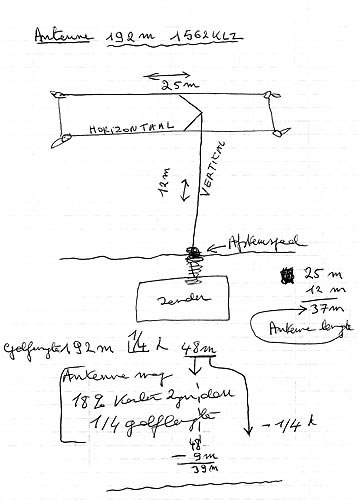 Antenne 192m 1562KLZ
25m
HORIZONTAAL
VERTIKAL
12m
Afstemspoel
Zender
25m
12m
37m
Antenne lengte
golflengte 192m 1/4 λ 48m
Antenne mag
18% korter zijn dan
1/4 golflengte
- 1/4 λ
48
- 9m
39m